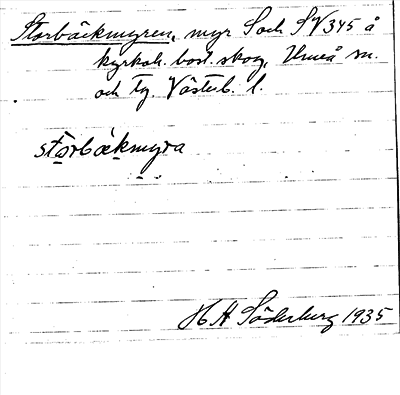 Storbäckmyren, myr S och SV 345 å
kyrkoh. bost. skog, Umeå sn.
och tg. Västerb. l.
stọrbäkmyra
H A Söderberg 1935